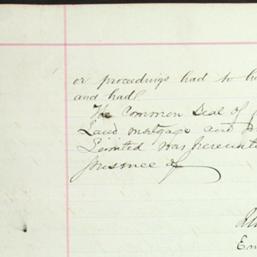 or proceedings had to
and had
The Common Seal of
Land mortgage and
Limited was hereunto
presence of